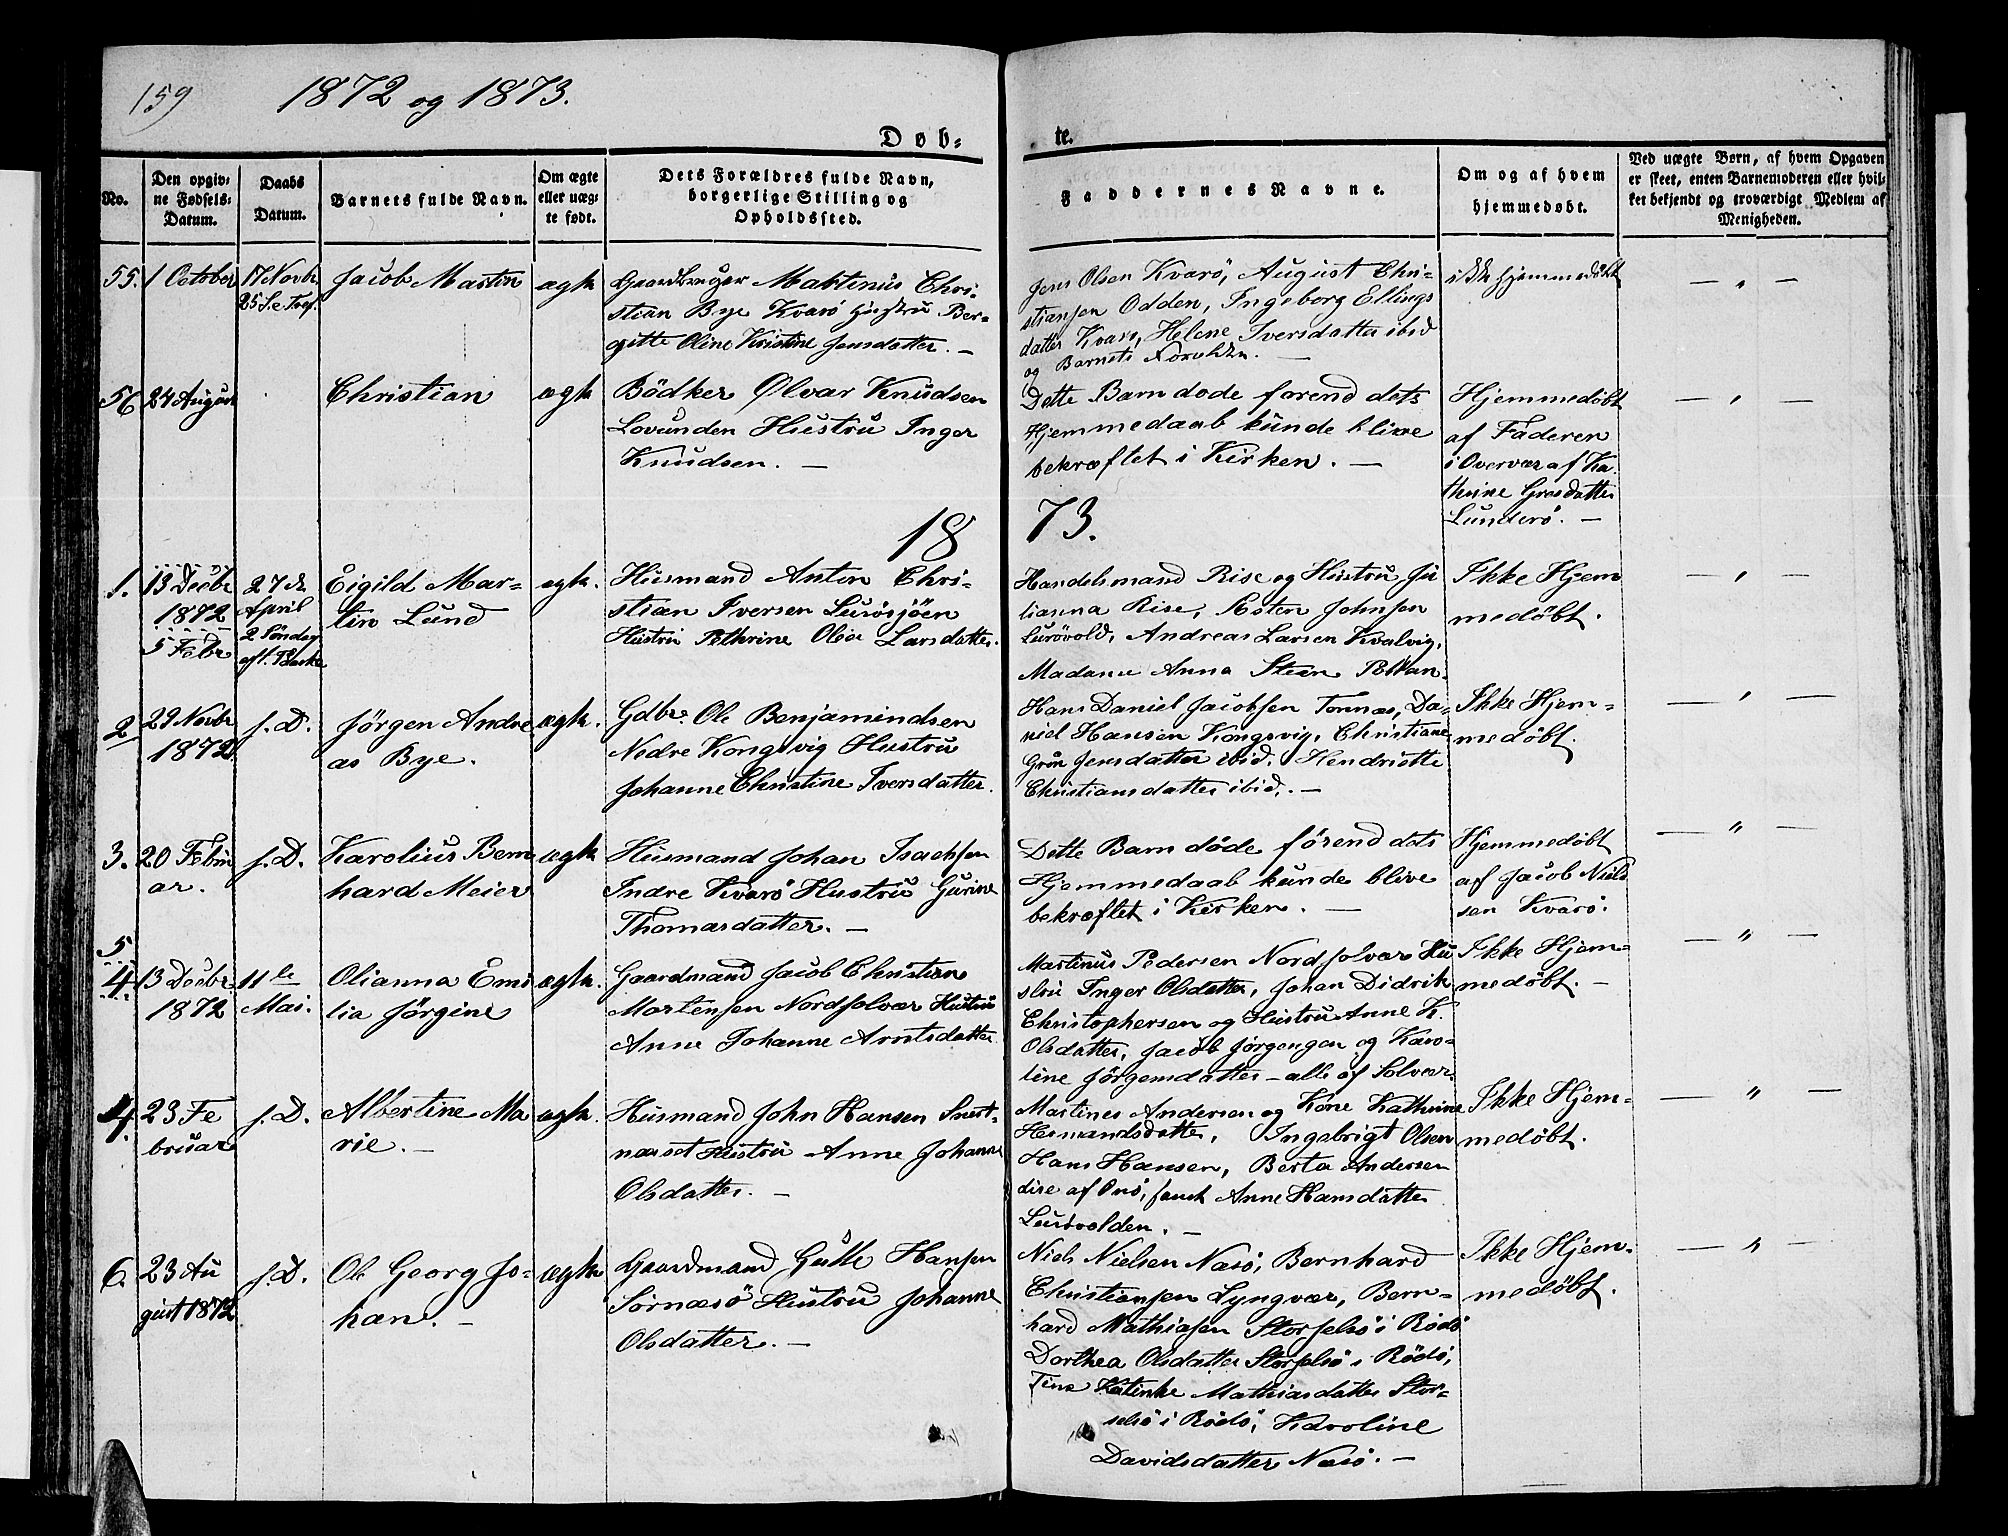 159
1872 og 1873.
Døb-
te.
No.
Den opgiv-
ne Fødsels-
Datum.
Daabs
Datum.
Barnets fulde Navn.
Om ægte
eller uæg-
te født.
Dets Forældres fulde Navn,
borgerlige Stilling og
Opholdssted.
Faddernes Navne.
Om og af hvem
hjemmedøbt.
Ved uægte Børn, af hvem Opgaven
er skeet, enten Barnemoderen eller hvil-
ket bekjendt og troværdigt Medlem af
Menigheden.
55.
1 October
17 Novbr
25 S. e. Tref.
Jacob Martin
ægte
Gaardbruger Martinus Chri-
stian Bye Kvarö Hustru Ber-
gitte Oline Kristine Jensdatter. —
Jens Olsen Kvarö, August Chri-
stiansen Odden, Ingeborg Ellings
datter Kvarö, Helene Iversdatter ibid
og Barnets Forældre. —
ikke hjemmedöbt
— " —
56
24 August
Christian
ægte
Bödker Olvar Knudsen
Lovunden Hustru Inger
Knudsen. —
Dette Barn döde forend dets
Hjemmedaab kunde blive
bekræftet i Kirken. —
Hjemmedöbt
af Faderen
i Overvær af Ka-
thrine
Lunderö. —
— " —
1873.
1.
13 Decbr
1872
5 Febr
27de
April
2 Söndag
eft. Paaske
Eigild Mar-
tin Lund
ægte.
Husmand Anton Chri-
stian Iversen Lurösjöen
Hustru Pethrine Olea Larsdatter.
Handelsmand Rise og Hustru Ju
lianna Rise, Johnsen
Lurövold, Andreas Larsen Kvalvig,
Madame Anna Steen
Ikke Hjem
medöbt.
— " —
2
29 Novbr
1872
s. D.
Jörgen Andre
as Bye.
ægte.
Gdbr. Ole Benjamindsen
Nedre Kongsvig Hustru
Johanne Christine Iversdatter.
Hans Daniel Jacobsen Tonnæs, Da-
niel Hansen Kongsvig, Christiane
Grön Jensdatter ibid. Hendriette
Christiansdatter ibid. —
Ikke Hjem-
medöbt.
— " —
3.
20 Febru
ar.
s. D.
Karolius Bern
hard Meier
ægte
Husmand Johan Isachsen
Indre Kvarö Hustru Gurine
Thomasdatter. —
Dette Barn döde förend dets
Hjemmedaab kunde blive
bekræftet i Kirken. —
Hjemmedöbt
af Jacob Niels
sen Kvarö.
— " —
5
4
13 Decbr.
1872
11te
Mai.
Olianna Emi
lia Jörgine
ægte.
Gaardmand Jacob Christian
Mortensen Nordsolvær Hustru
Anne Johanne Arntsdatter
Martinus Pedersen Nordsolvær Hu
stru Inger Olsdatter, Johan Didrik
Christophersen og Hustru Anne K.
Olsdatter, Jacob Jörgensen og Karo-
line Jörgensdatter — alle af Solvær.
Ikke Hjem-
medöbt. —
— " —
4.
23 Fe
bruar
s. D.
Albertine Ma
rie. —
ægte.
Husmand John Hansen
Hustru Anne Johanne
Olsdatter. —
Martines Andersen og Kone Kathrine
Hermandsdatter, Ingebrigt Olsen
Hans Hansen, Berta Andersen
disse af Onö, samt Anne Hansdatter
Lurövolden. —
Ikke Hjem-
medöbt.
— " —
6.
23 Au
gust 1872
s. D.
Ole Georg Jo-
han. —
ægte
Gaardmand Gulle Hansen
Sörnæsö Hustru Johanne
Olsdatter. —
Niels Nielsen Næsö, Bernhard
Christiansen Lyngvær, Bern-
hard Mathiasen Storselsö i Rödö
Dorthea Olsdatter Storselsö i Rödö,
Tine Katinke Mathiasdatter Stor-
selsö i Rödö, Karoline
Davidsdatter Næsö. —
Ikke Hjem-
medöbt.
— " —